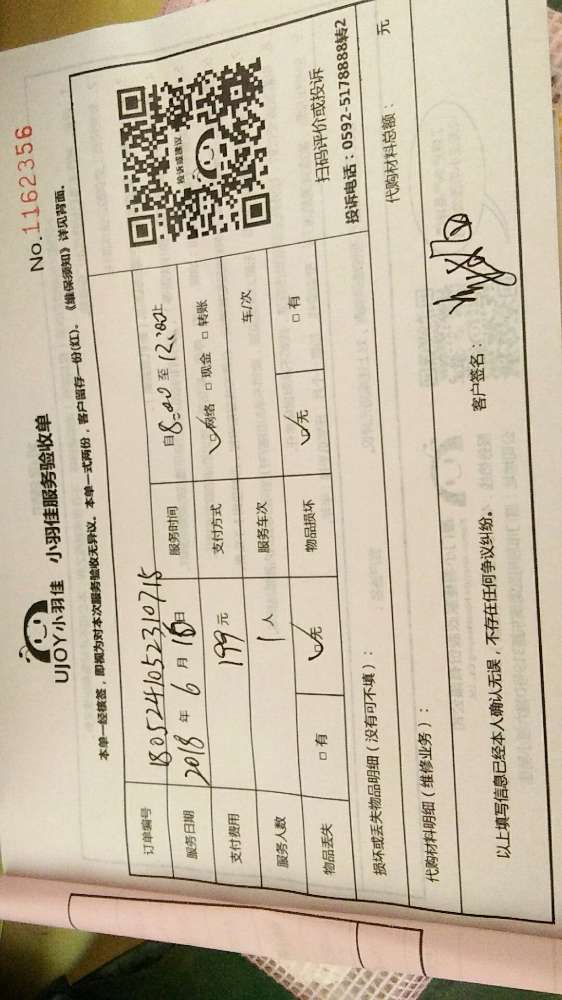 No.1162356
UJOY小羽佳 小羽佳服务验收单
本单一经核签，即视为对本次服务验收无异议。本单一式两份，客户留存一份(红)。《维保须知》详见背面。
订单编号 1805241052310715
服务日期 2018 年 6 月 18 日 服务时间 自 8:00 至 12:00止
支付费用 199 元 支付方式 ☑网络 □现金 □转账
服务人数 1 人 服务车次 车/次
物品丢失 □有 ☑无 物品损坏 ☑无 □有
投诉或建议
扫码评价或投诉
投诉电话：0592-5178888转2
损坏或丢失物品明细（没有可不填）：
代购材料明细（维修业务）： 代购材料总额： 元
以上填写信息已经本人确认无误，不存在任何争议纠纷。 客户签名：